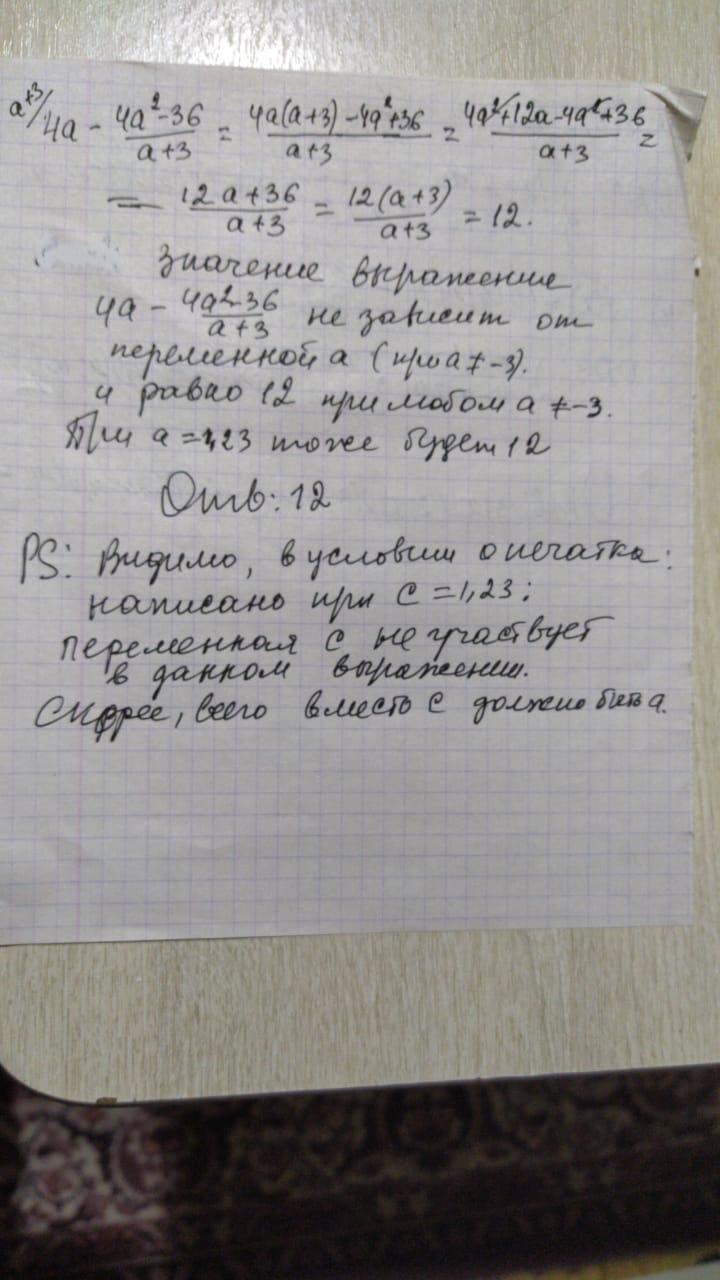 a+3/ 4a - 4a²-36 / a+3 = 4a(a+3)-4a²+36 / a+3 = 4a²+12a-4a²+36 / a+3 =
= 12a+36 / a+3 = 12(a+3) / a+3 = 12.
Значение выражение
4a - 4a²-36 / a+3 не зависит от
переменной a (при a ≠ -3).
и равно 12 при любом a ≠ -3.
При a = 1,23 тоже будет 12
Отв: 12
PS: Видимо, в условии опечатка:
написано при c = 1,23;
переменная c не участвует
в данном выражении.
Скорее, всего вместо c должно быть a.